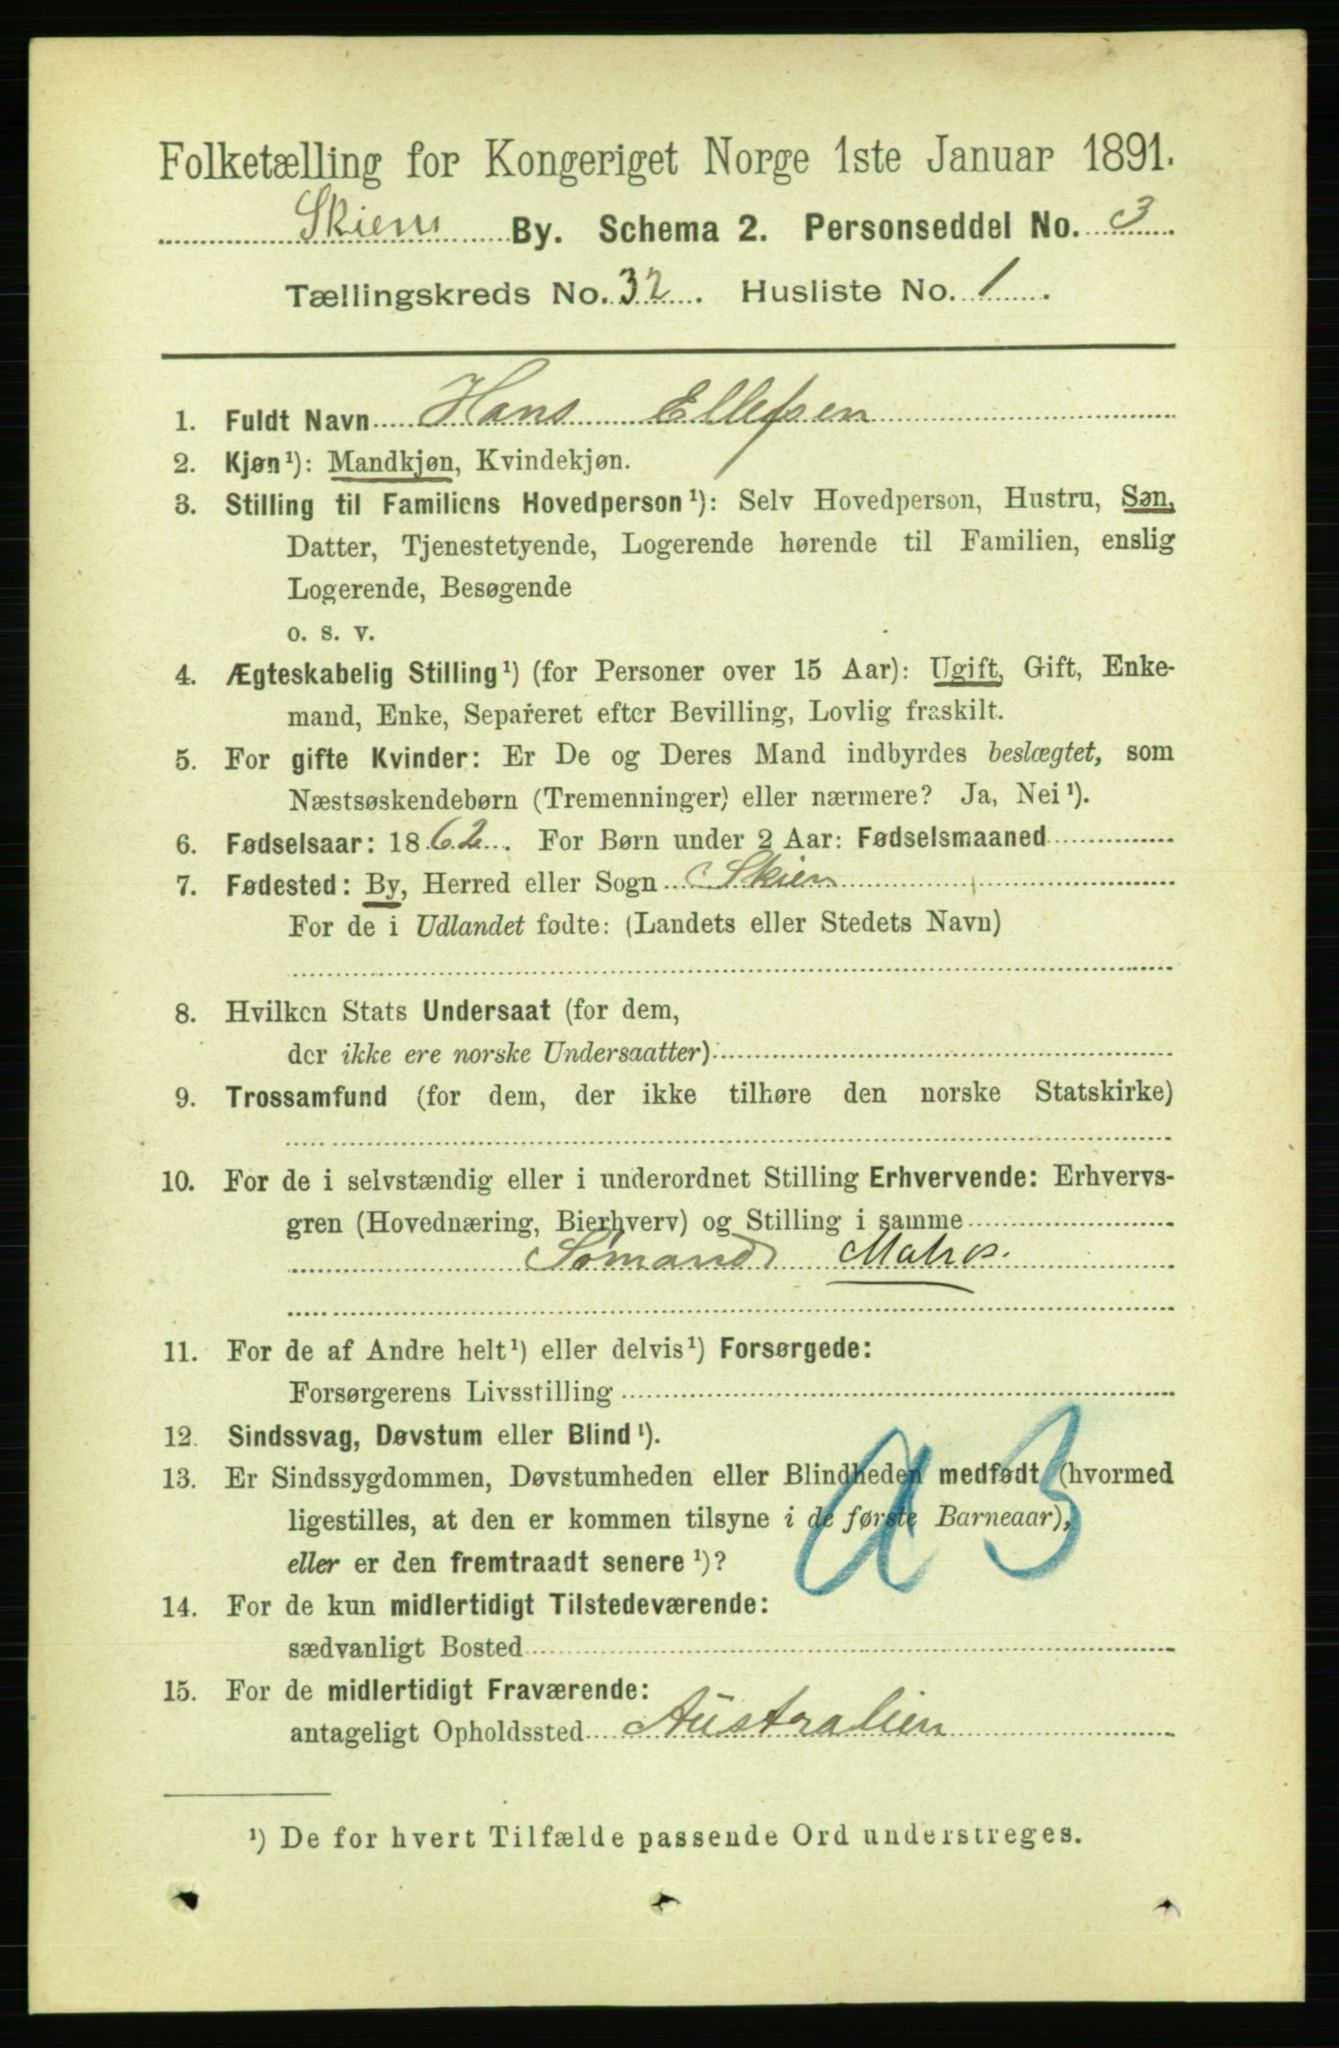 Folketælling for Kongeriget Norge 1ste Januar 1891.
Skiens By. Schema 2. Personseddel No. 3
Tællingskreds No. 32. Husliste No. 1.
1. Fuldt Navn Hans Ellefsen
2. Kjøn¹): Mandkjøn, Kvindekjøn.
3. Stilling til Familiens Hovedperson¹): Selv Hovedperson, Hustru, Søn,
Datter, Tjenestetyende, Logerende hørende til Familien, enslig
Logerende, Besøgende
o. s. v.
4. Ægteskabelig Stilling¹) (for Personer over 15 Aar): Ugift, Gift, Enke-
mand, Enke, Separeret efter Bevilling, Lovlig fraskilt.
5. For gifte Kvinder: Er De og Deres Mand indbyrdes beslægtet, som
Næstsøskendebørn (Tremenninger) eller nærmere? Ja, Nei¹).
6. Fødselsaar: 1862. For Børn under 2 Aar: Fødselsmaaned
7. Fødested: By, Herred eller Sogn Skien
For de i Udlandet fødte: (Landets eller Stedets Navn)
8. Hvilken Stats Undersaat (for dem,
der ikke ere norske Undersaatter)
9. Trossamfund (for dem, der ikke tilhøre den norske Statskirke)
10. For de i selvstændig eller i underordnet Stilling Erhvervende: Erhvervs-
gren (Hovednæring, Bierhverv) og Stilling i samme
Sømand Matros.
11. For de af Andre helt¹) eller delvis¹) Forsørgede:
Forsørgerens Livsstilling
12. Sindssvag, Døvstum eller Blind¹).
13. Er Sindssygdommen, Døvstumheden eller Blindheden medfødt (hvormed
ligestilles, at den er kommen tilsyne i de første Barneaar),
eller er den fremtraadt senere¹)?
14. For de kun midlertidigt Tilstedeværende:
sædvanligt Bosted
15. For de midlertidigt Fraværende:
antageligt Opholdssted Australien
¹) De for hvert Tilfælde passende Ord understreges.